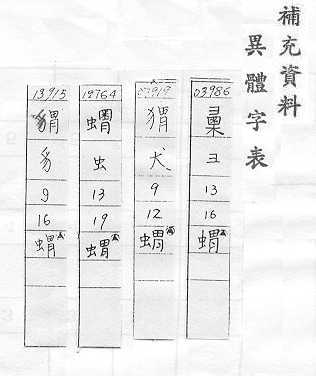 補充資料
異體字表
03986
彐
13
16
蝟
猬
犬
9
12
蝟
12764
虫
13
19
蝟
13915
豸
9
16
蝟